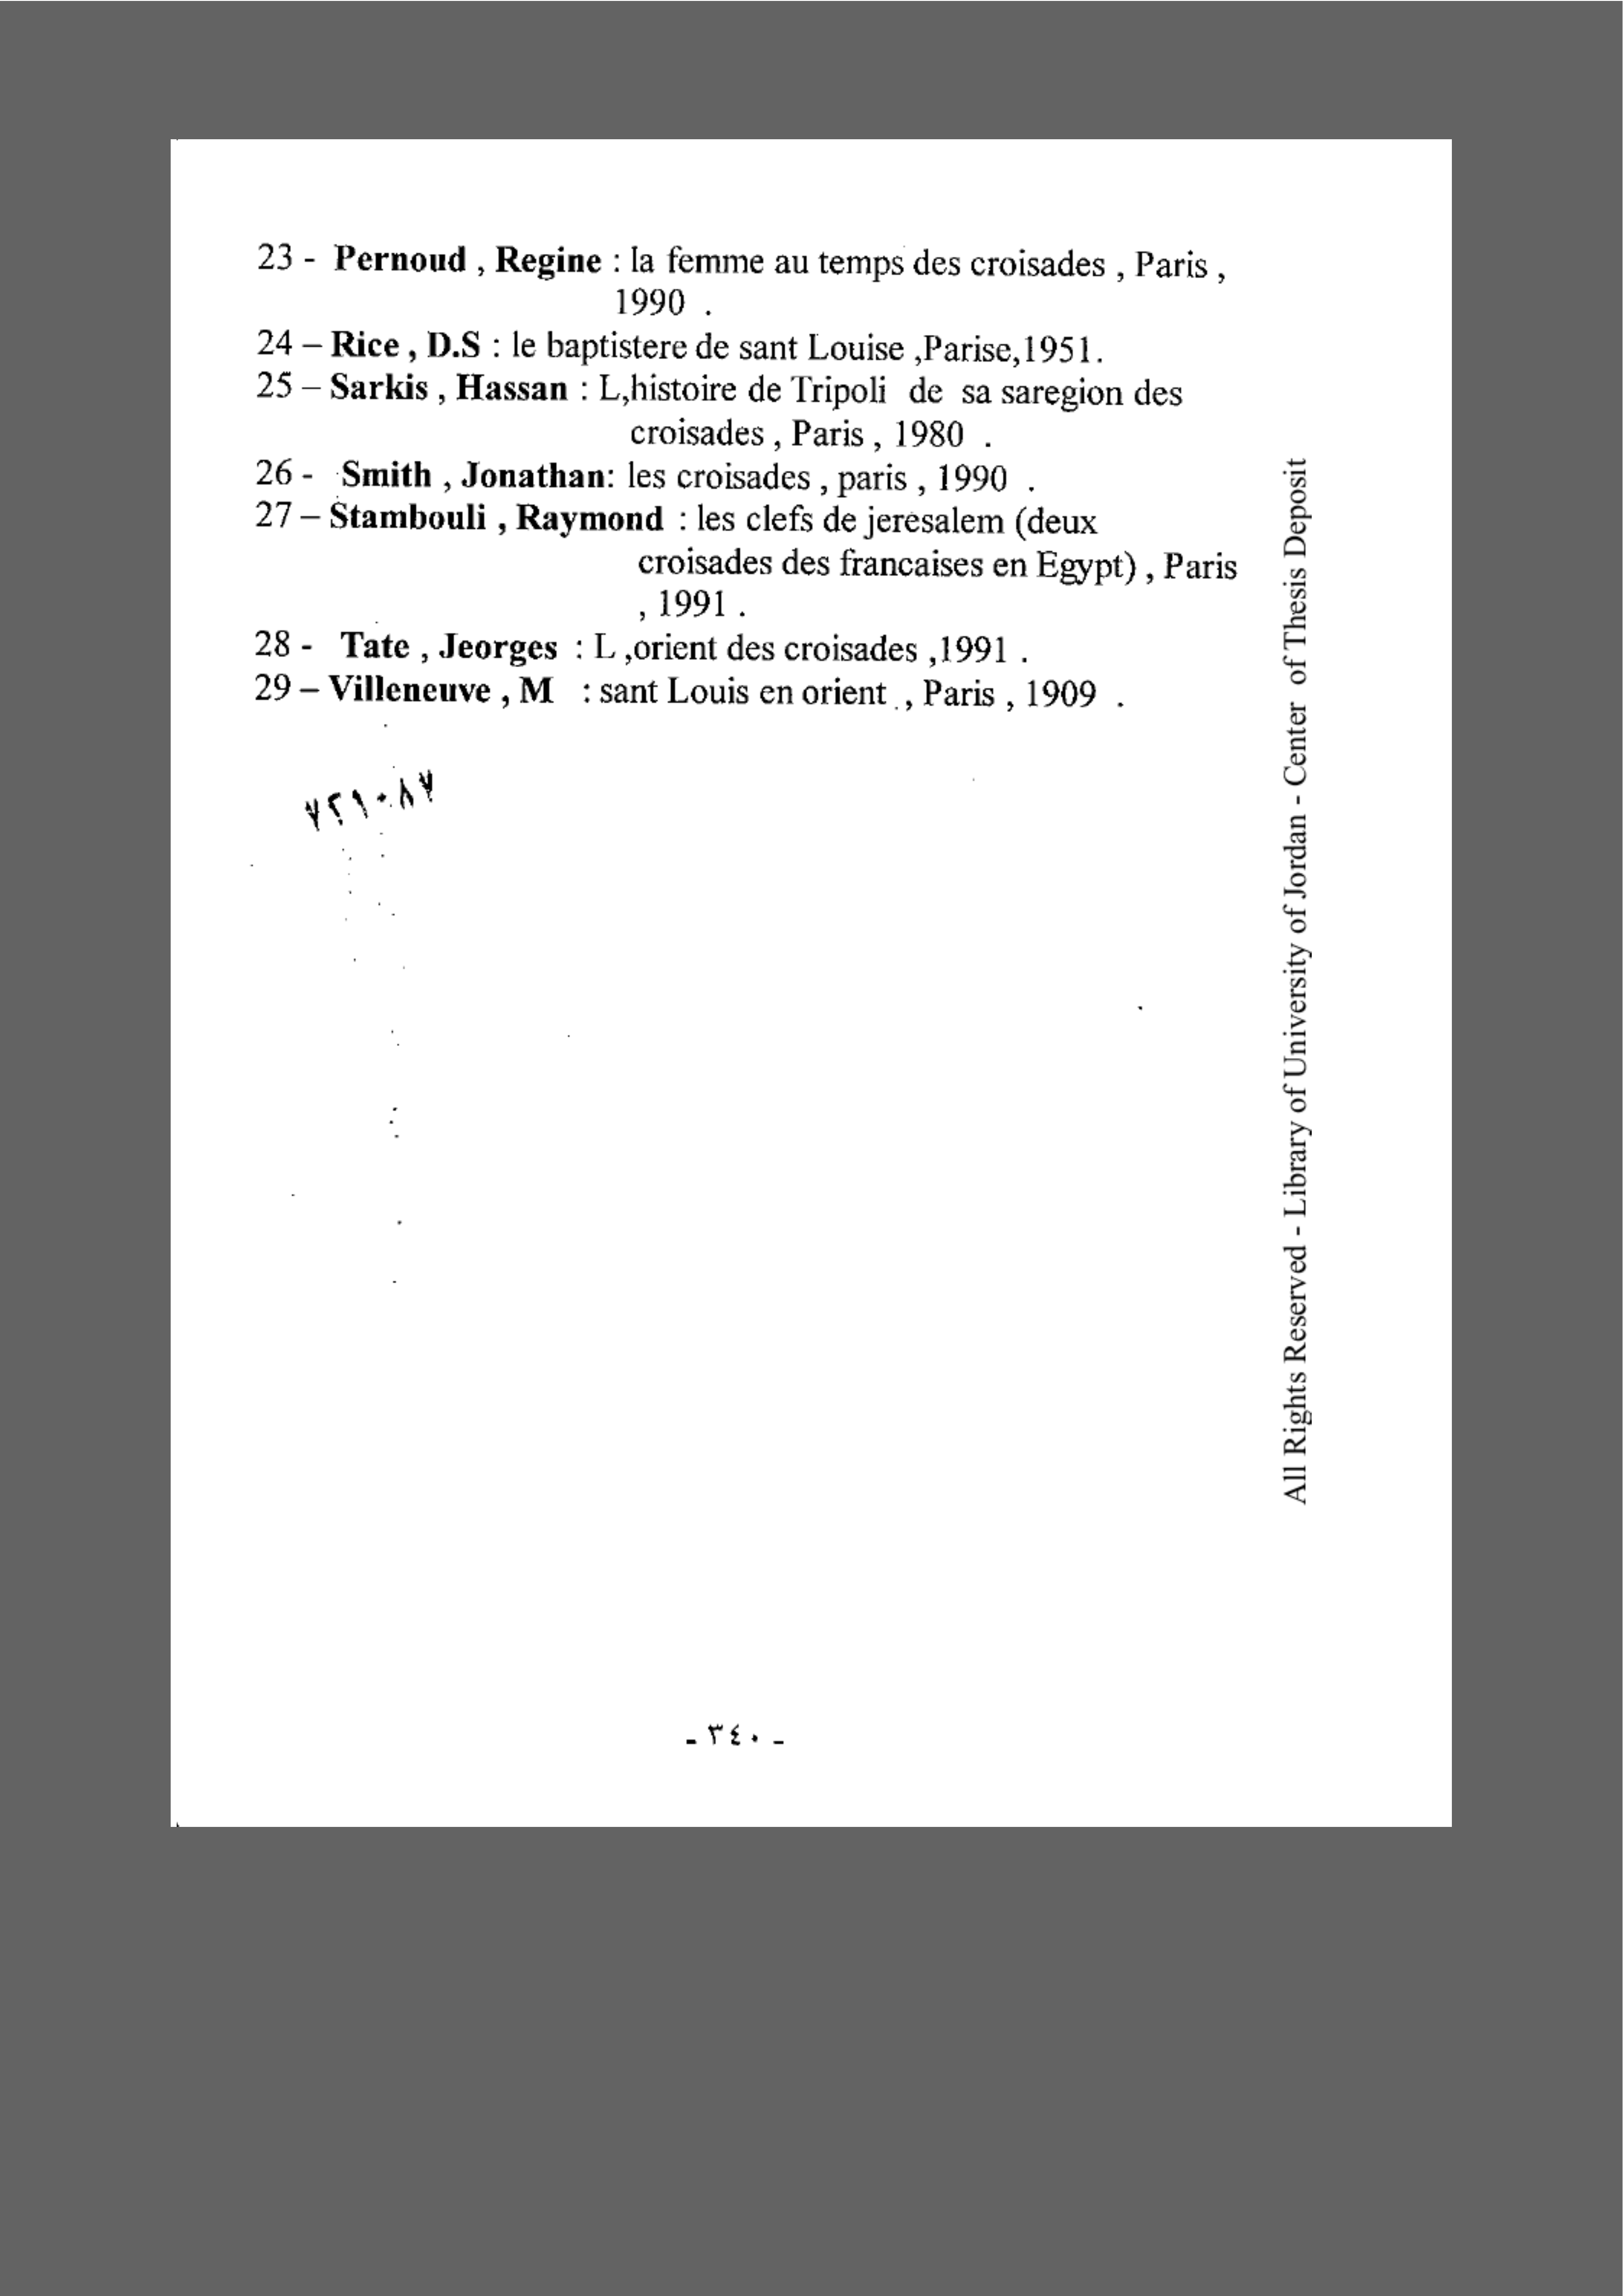 23 - Pernoud , Regine : la femme au temps des croisades , Paris ,
1990 .
24 – Rice , D.S : le baptistere de sant Louise ,Parise,1951.
25 – Sarkis , Hassan : L,histoire de Tripoli de sa saregion des
croisades , Paris , 1980 .
26 - Smith , Jonathan: les croisades , paris , 1990 .
27 – Stambouli , Raymond : les clefs de jeresalem (deux
croisades des francaises en Egypt) , Paris
, 1991 .
28 - Tate , Jeorges : L ,orient des croisades ,1991 .
29 – Villeneuve , M : sant Louis en orient , Paris , 1909 .
- ٣٤٠ -
All Rights Reserved - Library of University of Jordan - Center of Thesis Deposit